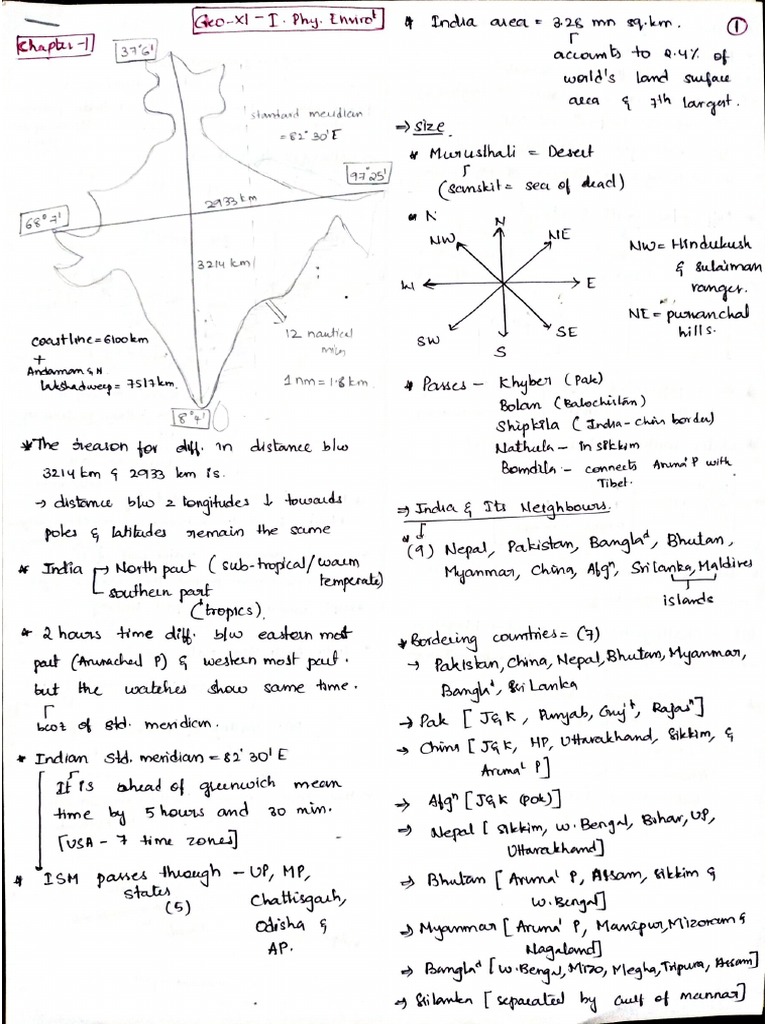 Geo-XI-I. Phy. Envirot
Chapter-1
37°6'
standard meridian
= 82° 30'E
97°25'
2933 km
68°7'
3214 km
coastline = 6100 km
+
Andaman & N
Lakshadweep = 7517 km.
12 nautical
miles
1 nm = 1.8 km.
8°4'
* The reason for diff. in distance b/w
3214 km & 2933 km is.
→ distance b/w 2 longitudes ↓ towards
poles & latitudes remain the same
* India → North part (sub-tropical/warm
temperate)
southern part
(tropics).
* 2 hours time diff. b/w eastern most
part (Arunachal P) & western most part.
but the watches show same time.
bcoz of std. meridian.
* Indian Std. meridian = 82° 30' E
It is ahead of greenwich mean
time by 5 hours and 30 min.
[USA - 7 time zones]
* ISM passes through - UP, MP,
states
(5)
Chattisgarh,
Odisha &
AP.
* India area = 3.28 mn sq.km.
①
accounts to 2.4% of
world's land surface
area & 7th largest.
⇒ size.
* Murusthali = Desert
(sanskit = sea of dead)
* N
N
NW
NE
W
E
SW
SE
S
NW = Hindukush
& sulaiman
ranger.
NE = puranchal
hills.
* Passes - Khyber (Pak)
Bolan (Balochistan)
Shipkila (India-chin border)
Nathula - in sikkim
Bomdila - connects Aruna' P with
Tibet.
⇒ India & Its Neighbours.
* (9) Nepal, Pakistan, Banglad, Bhutan,
Myanmar, China, Afgn, Sri lanka, Maldives
islands
* Bordering countries = (7)
→ Pakistan, China, Nepal, Bhutan, Myanmar,
Banglad, Sri Lanka
→ Pak [J&K, Punjab, Gujt, Rajasn]
→ China [J&K, HP, Uttarakhand, Sikkim, &
Aruna' P]
→ Afgn [J&K (pok)]
→ Nepal [sikkim, W. Bengal, Bihar, UP,
Uttarakhand]
→ Bhutan [Aruna' P, Assam, sikkim &
W. Bengal]
→ Myanmar [Aruna' P, Manipur, Mizoram &
Nagaland]
→ Banglad [W. Bengal, Mizo, Megha, Tripura, Assam]
→ Sri lanka [separated by Gulf of mannar]